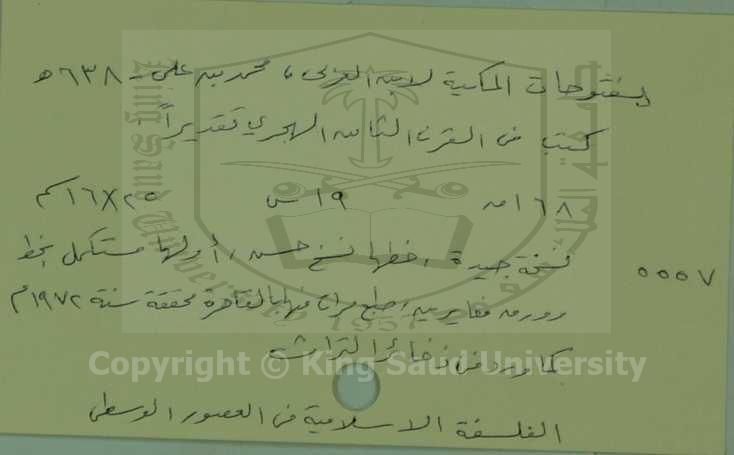 الفتوحات المكية لابن العربي، محمد بن علي - ٦٣٨ هـ
كتب في القرن الثامن الهجري تقديراً.
١٦٨ ق ١٩ س ٢٥×١٦ سم
نسخة جيدة، خطها نسخ حسن، أولها مستكمل بخط
٥٥٥٧
وورق مغايرين، طبع مرات منها بالقاهرة محققة سنة ١٩٧٢م
كما ورد في ذخائر التراث
الفلسفة الاسلامية في العصور الوسطى
Copyright © King Saud University